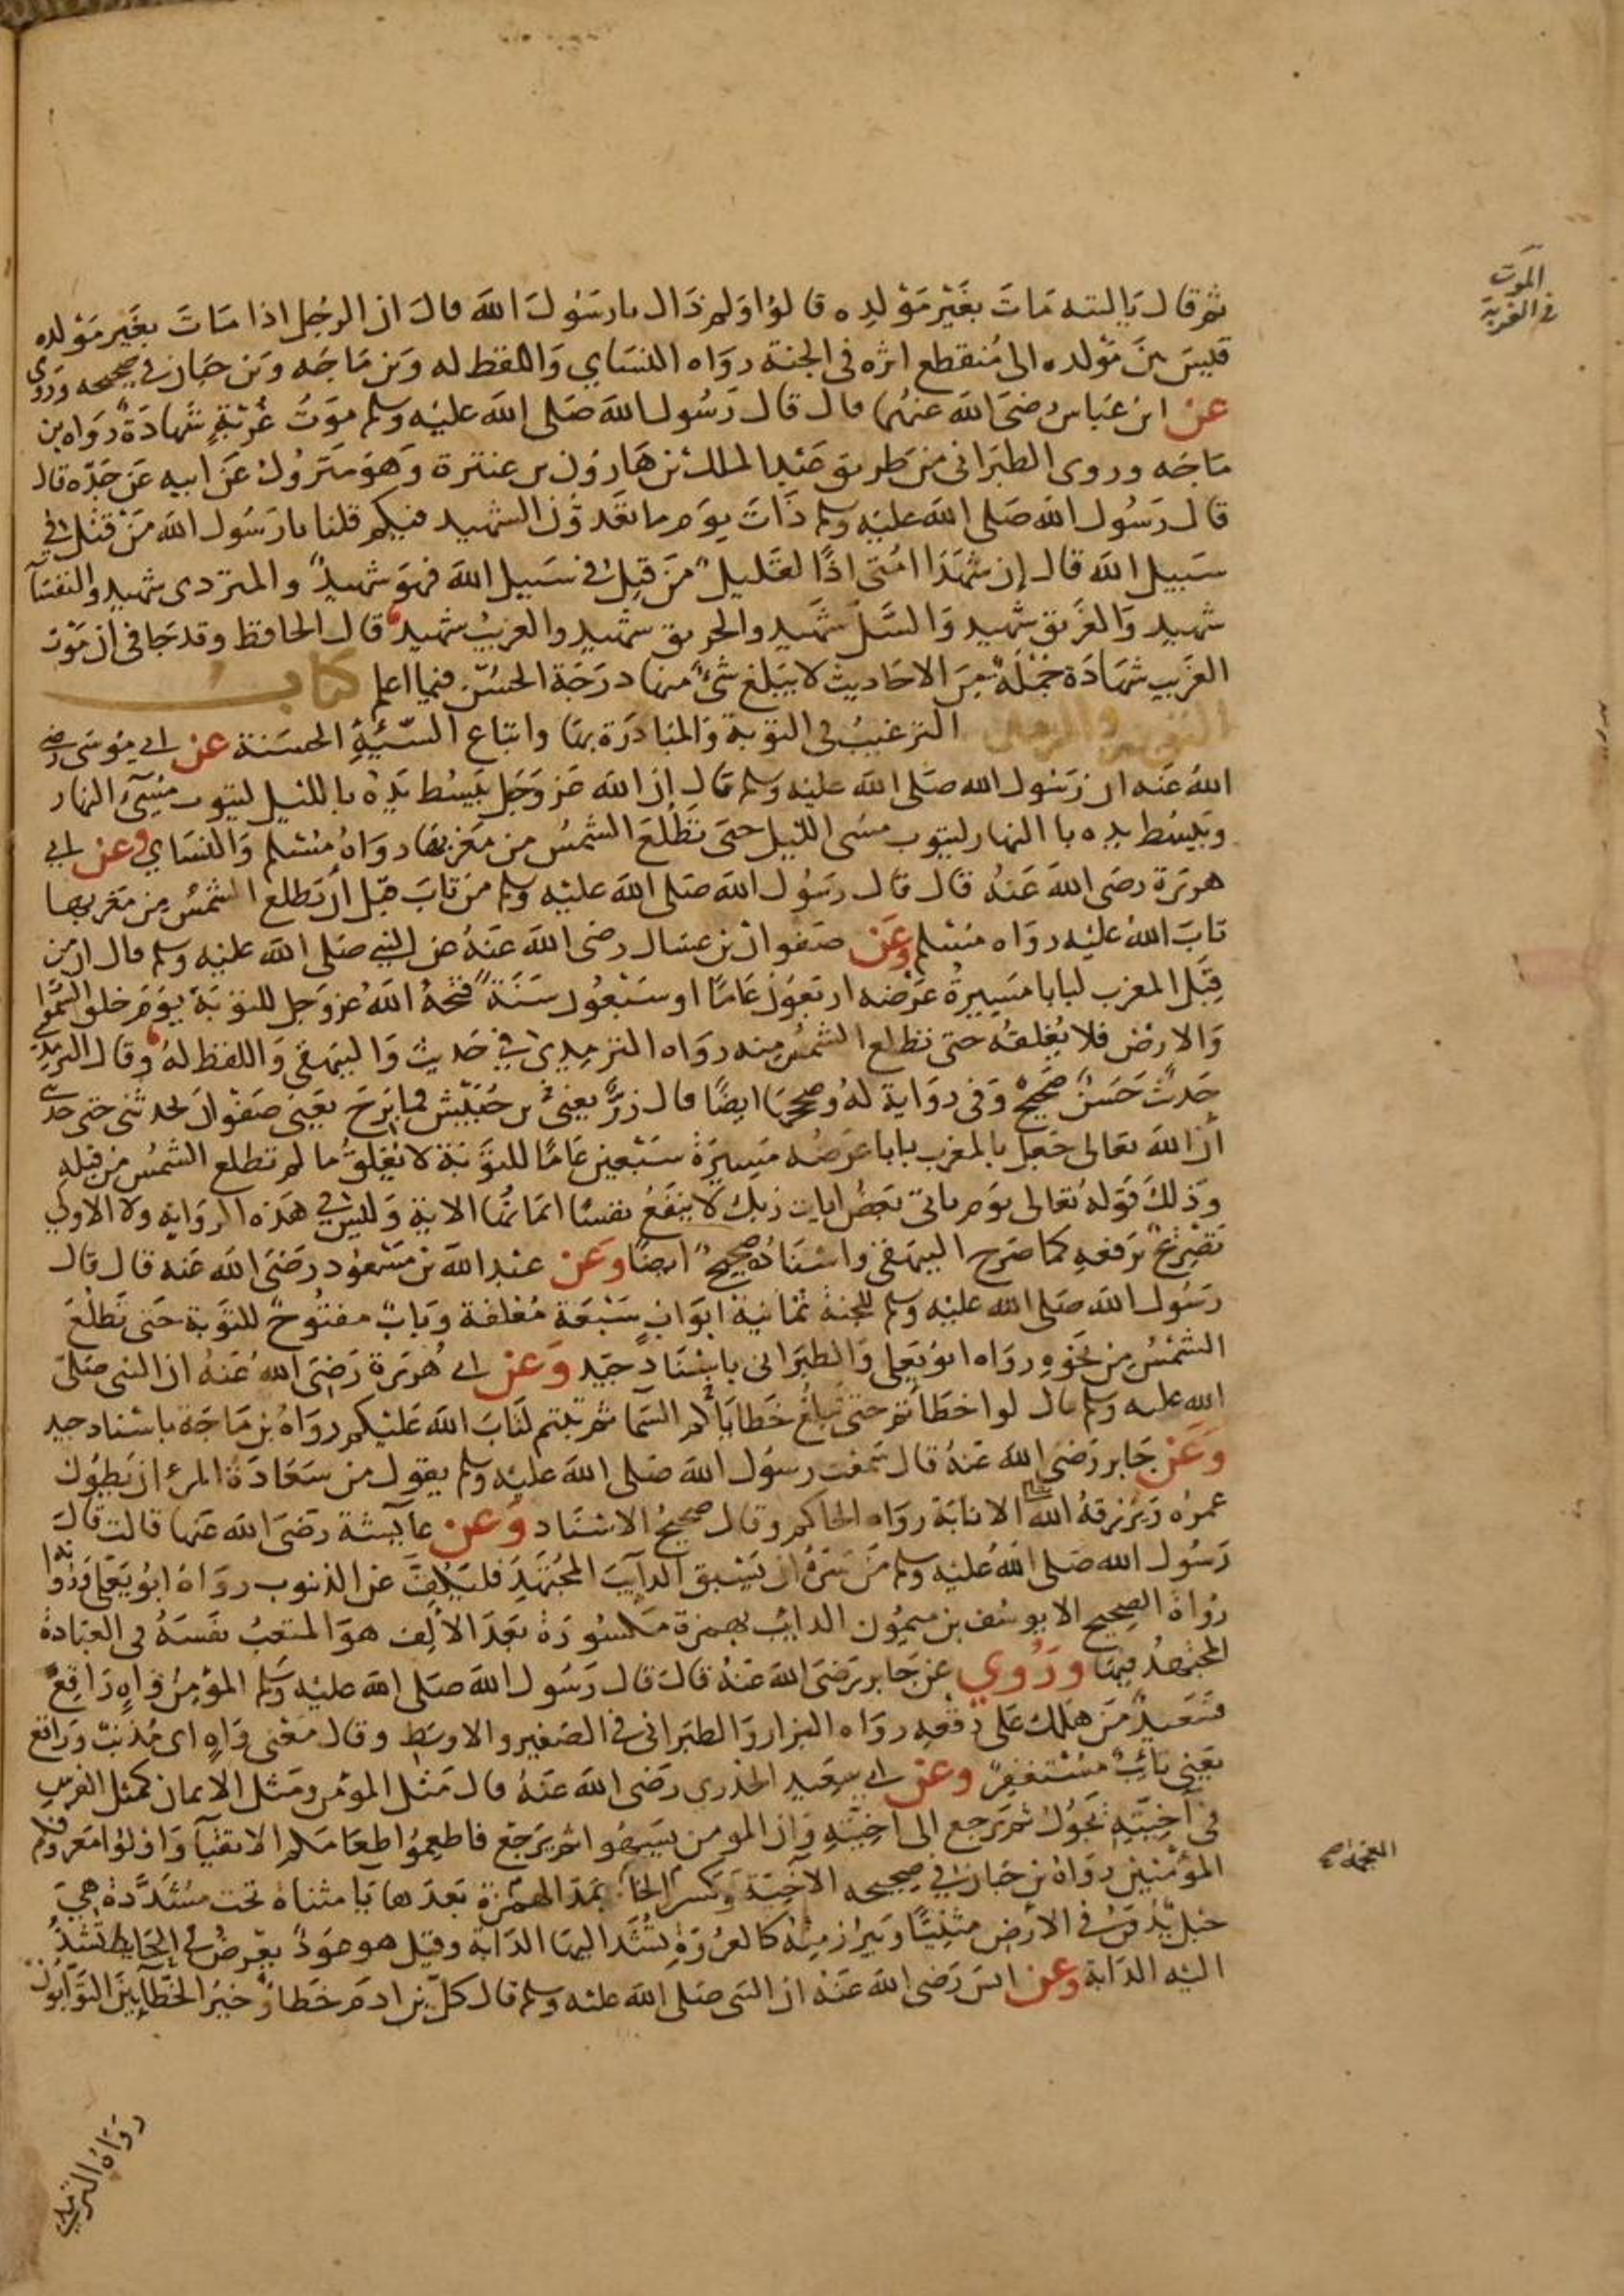 الموت
في الغربة
ثم قال يا ليته مات بغير مولده قالوا ولم ذاك يا رسول الله قال ان الرجل اذا مات بغير مولده
قيس من مولده الى منقطع اثره في الجنة رواه النساي واللفظ له وبن ماجه وبن حبان في صحيحه وروى
عن ابن عباس رضي الله عنهما قال قال رسول الله صلى الله عليه وسلم موت غربة شهادة رواه بن
ماجه وروى الطبراني من طريق عبد الملك بن هارون بن عنترة وهو متروك عن ابيه عن جده قال
قال رسول الله صلى الله عليه وسلم ذات يوم ما تعدون الشهيد فيكم قلنا يا رسول الله من قتل في
سبيل الله قال إن شهدا امتى اذا لقليل من قتل في سبيل الله فهو شهيد والمتردى شهيد والنفسآ
شهيد والغريق شهيد والسل شهيد والحريق شهيد والغريب شهيد قال الحافظ وقد جا في ان موت
الغريب شهادة جملة من الاحاديث لا يبلغ شئ منها درجة الحسن فيما اعلم كتاب
التوبة والزهد الترغيب في التوبة والمبادرة بها واتباع السيئة الحسنة عن ابي موسى رضي
الله عنه ان رسول الله صلى الله عليه وسلم قال إن الله عز وجل يبسط يده بالليل ليتوب مسيئ النهار
ويبسط يده با النهار ليتوب مسى الليل حتى تطلع الشمس من مغربها رواه مسلم والنساي وعن ابي
هريرة رضى الله عنه قال قال رسول الله صلى الله عليه وسلم من تاب قبل أن تطلع الشمس من مغربها
تاب الله عليه رواه مسلم وعن صفوان بن عسال رضى الله عنه عن النبي صلى الله عليه وسلم قال ان من
قبل المغرب لبابا مسيرة عرضه اربعون عاما او سبعون سنة فتحه الله عز وجل للتوبة يوم خلق السموات
والارض فلا يغلقه حتى تطلع الشمس منه رواه الترمذى في حديث والبيهقي واللفظ له وقال الترمذي
حديث حسن صحيح وفي رواية له وصححها ايضا قال زر يعني بن حبيش فما برح يعنى صفوان يحدثنى حتى حدثني
أن الله تعالى جعل بالمغرب بابا عرضه مسيرة سبعين عاما للتوبة لا يغلق ما لم تطلع الشمس من قبله
وذلك قوله تعالى يوم ياتي بعض ايات ربك لا ينفع نفسا ايمانها الاية وليس في هذه الرواية ولا الاولي
تصريح برفعه كما صرح البيهقي واسناده صحيح ايضا وعن عبد الله بن مسعود رضي الله عنه قال قال
رسول الله صلى الله عليه وسلم للجنة ثمانية ابواب سبعة مغلقة وباب مفتوح للتوبة حتى تطلع
الشمس من نحوه رواه ابو يعلى والطبراني باسناد جيد وعن ابي هريرة رضي الله عنه ان النبي صلى
الله عليه وسلم قال لو اخطاتم حتى تبلغ خطاياكم السما ثم تبتم لتاب الله عليكم رواه بن ماجة باسناد جيد
وعن جابر رضي الله عنه قال سمعت رسول الله صلى الله عليه وسلم يقول من سعادة المرء ان يطول
عمره ويرزقه الله الانابة رواه الحاكم وقال صحيح الاسناد وعن عايشة رضي الله عنها قالت قال
رسول الله صلى الله عليه وسلم من سره ان يسبق الدآيب المجتهد فليكف عن الذنوب رواه ابو يعلى ورواته
رواة الصحيح الا يوسف بن ميمون الدايب بهمزة مكسورة بعد الالف هو المتعب نفسه في العبادة
المجتهد فيها وروي عن جابر رضي الله عنه قال قال رسول الله صلى الله عليه وسلم المؤمن واه راقع
فسعيد من هلك على رقعه رواه البزار والطبراني في الصغير والاوسط وقال معنى واه اى مذنب وراقع
يعني تائب مستغفر وعن ابي سعيد الخدري رضي الله عنه قال مثل المؤمن ومثل الايمان كمثل الفرس
في آخيته يجول ثم يرجع الى اخيته وان المومن يسهوا ثم يرجع فاطعموا طعامكم الاتقيآ واولوا معروفكم
المؤمنين رواه بن حبان في صحيحه الآخية وكسر الخا بمد الهمزة بعدها يا مثناة تحت مشددة هي
المعجمة صح
حبل يدفن في الأرض مثنيا ويبرز منه كالعروة تشد اليها الدابة وقيل هو عود يعرض في الحايط تشد
اليه الدابة وعن انس رضي الله عنه ان النبي صلى الله عليه وسلم قال كل بن ادم خطاء وخير الخطآيين التوابون
رواه الترمذي